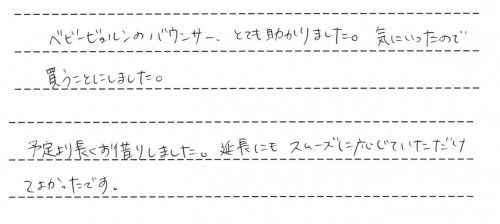 ベビービョルンのバウンサー、とても助かりました。気にいったので
買うことにしました。
予定より長くお借りしました。延長にも スムーズに応じていただけ
てよかったです。